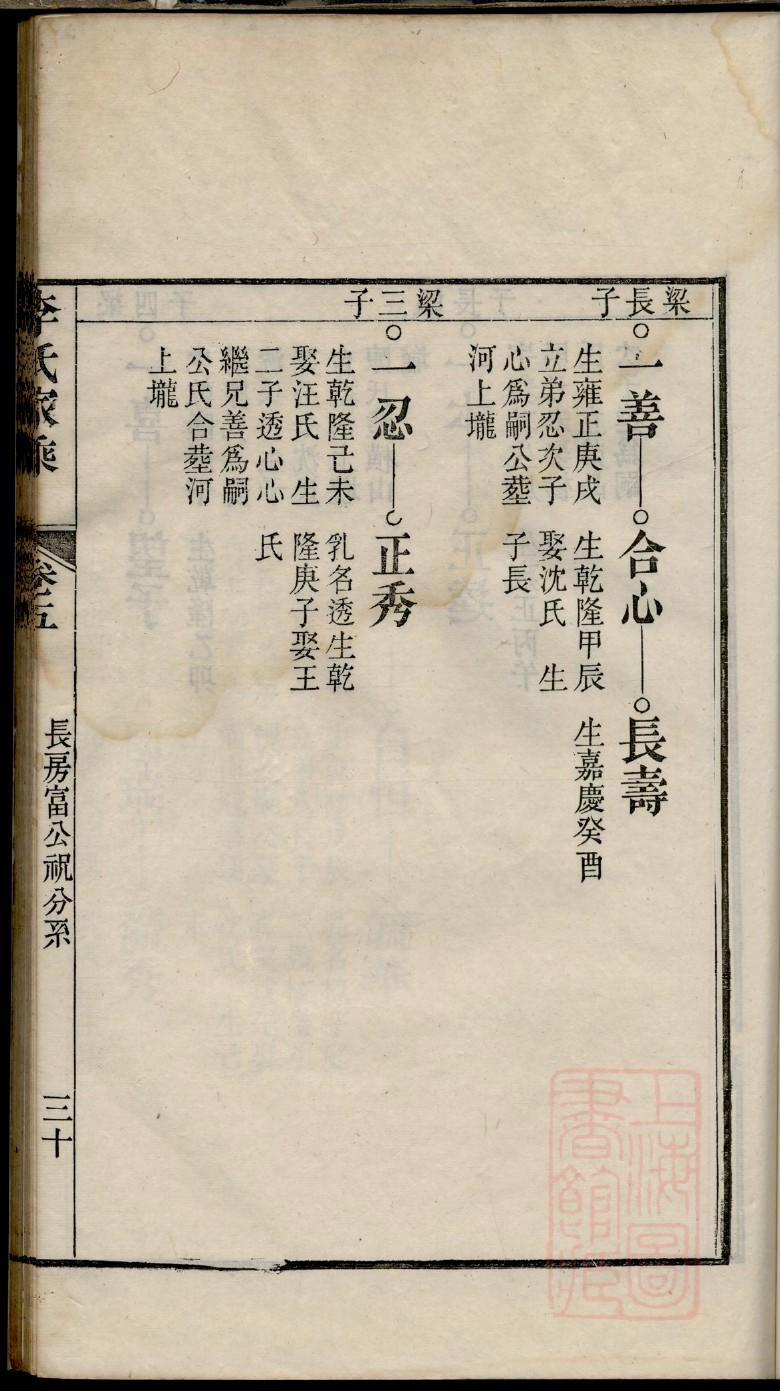 梁長子
一善
合心
長壽
生雍正庚戌
立弟忍次子
心爲嗣公塟
河上壠
生乾隆甲辰
娶沈氏 生
子長
生嘉慶癸酉
梁三子
一忍
正秀
生乾隆己未
娶汪氏 生
二子透心心
繼兄善爲嗣
公氏合塟河
上壠
乳名透生乾
隆庚子娶王
氏
李氏家乘
卷五
長房富公祝分系
三十
上海圖
書館藏